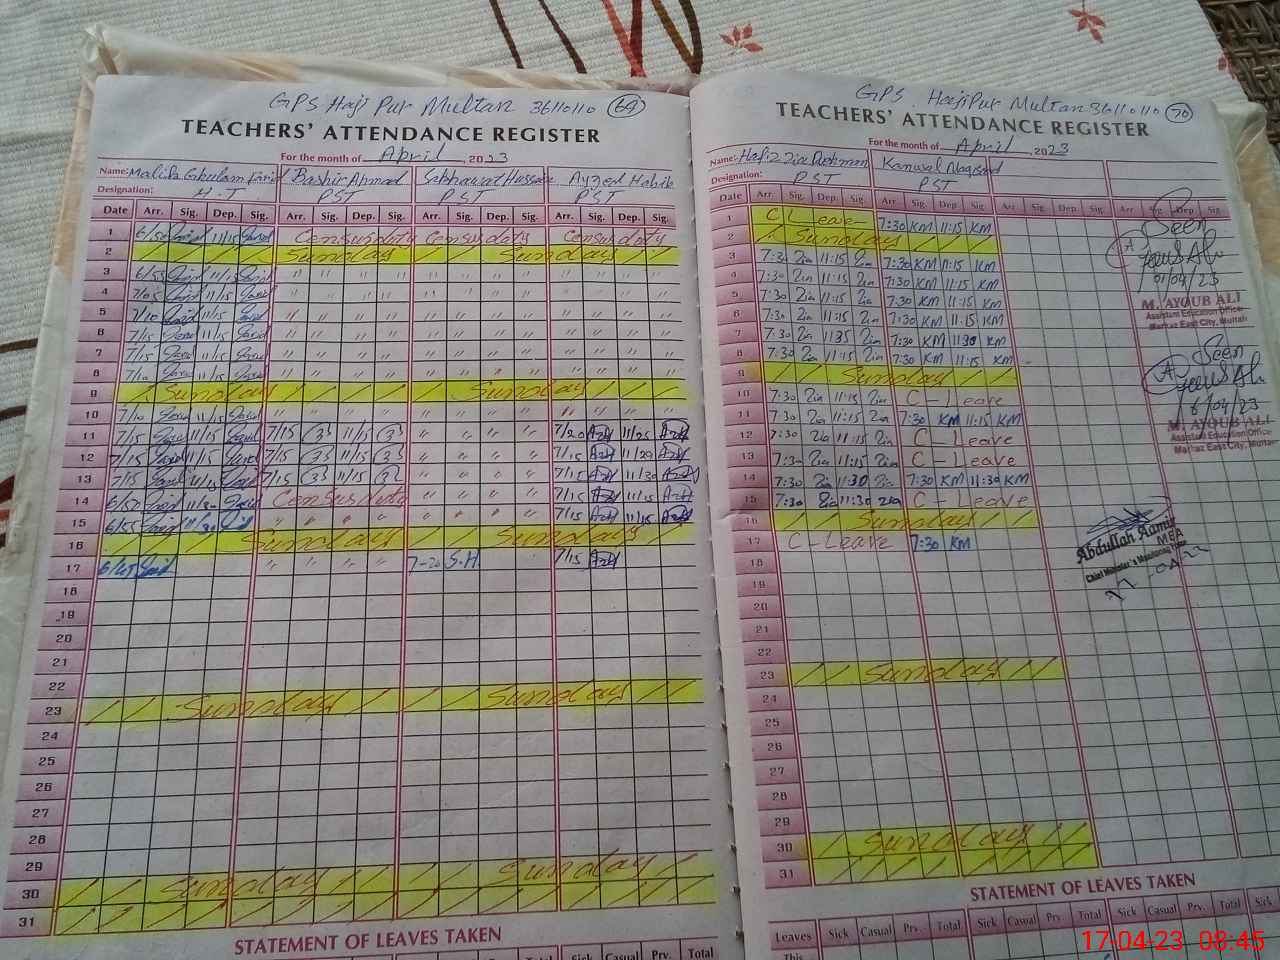 GPS Haji Pur Multan 36110110 69
TEACHERS' ATTENDANCE REGISTER
For the month of April, 2023
Name: Malik Ghulam Farid Bashir Ahmad Sakhawat Hussain
Designation: H.T PST PST PST
Date Arr. Sig. Dep. Sig. Arr. Sig. Dep. Sig. Arr. Sig. Dep. Sig. Arr. Sig. Dep. Sig.
1 11/15 Census duty Census duty Census duty
2 Sunday Sunday
3 6/55 11/15 " " " " " " " " " " " "
4 7/05 11/15 " " " " " " " " " " " "
5 7/10 11/15 " " " " " " " " " " " "
6 7/15 11/15 " " " " " " " " " " " "
7 7/15 11/15 " " " " " " " " " " " "
8 7/10 11/15 " " " " " " " " " " " "
9 Sunday Sunday
10 7/10 11/15 " " " " " " " " " " " "
11 7/15 11/15 7/15 11/15 " " " " 7/20 11/25
12 7/15 11/15 7/15 11/15 " " " " 7/15 11/20
13 7/15 11/15 7/15 11/15 " " " " 7/15 11/30
14 6/50 11/30 Census duty " " " " 7/15 11/15
15 6/55 11/30 " " " " " " " " 7/15 11/15
16 Sunday Sunday
17 6/45 " " " " 7-20 S.H 7/15
18
19
20
21
22
23 Sunday Sunday
24
25
26
27
28
29
30 Sunday Sunday
31
STATEMENT OF LEAVES TAKEN
Sick Casual Prv. Total
GPS Haji Pur Multan 36110110 70
TEACHERS' ATTENDANCE REGISTER
For the month of April, 2023
Name: Hafiz Zia Kanwal
Designation: PST PST
Date Arr. Sig. Dep. Sig. Arr. Sig. Dep. Sig. Arr. Sig. Dep. Sig. Arr. Sig. Dep. Sig.
1 C Leave 7:30 KM 11:15 KM
2 Sunday
3 7:30 Zia 11:15 Zia 7:30 KM 11:15 KM
4 7:30 Zia 11:15 Zia 7:30 KM 11:15 KM
5 7:30 Zia 11:15 Zia 7:30 KM 11:15 KM
6 7:30 Zia 11:15 Zia 7:30 KM 11:15 KM
7 7:30 Zia Zia 7:30 KM KM
8 7:30 Zia 11:15 Zia 7:30 KM 11:15 KM
9 Sunday
10 7:30 Zia 11:15 Zia C - Leave
11 7:30 Zia 11:15 Zia 7:30 KM 11:15 KM
12 7:30 Zia 11:15 Zia C - Leave
13 7:30 Zia 11:15 Zia C - Leave
14 7:30 Zia 11:30 Zia 7:30 KM 11:30 KM
15 7:30 Zia 11:30 Zia C - Leave
16 Sunday
17 C - Leave 7:30 KM
18
19
20
21
22
23 Sunday
24
25
26
27
28
29
30 Sunday
31
Seen
A
01/04/23
M. AYOUB ALI
Assistant Education Officer
Markaz East City, Multan
Seen
A
6/04/23
M. AYOUB ALI
Assistant Education Office
Markaz East City, Multan
Abdullah Aamir
MEA
Chief Minister's Monitoring
STATEMENT OF LEAVES TAKEN
Leaves Sick Casual Prv. Total Sick Casual Prv. Total Sick
This
17-04-23 08:45